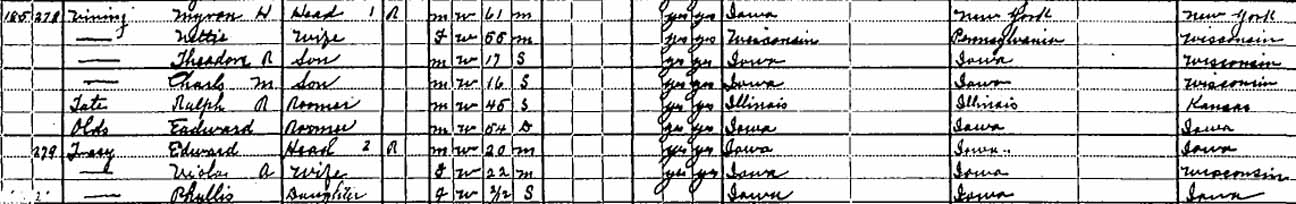 185 278 Vining Myron H Head 1 R m w 61 m yes yes Iowa New York New York
— Nettie Wife f w 55 m yes yes Wisconsin Pennsylvania Wisconsin
— Theodore R Son m w 17 S yes yes Iowa Iowa Wisconsin
— Charls M Son m w 16 S yes yes Iowa Iowa Wisconsin
Tate Ralph R Roomer m w 45 S yes yes Illinois Illinois Kansas
Olds Eadward Roomer m w 54 D yes yes Iowa Iowa Iowa
279 Edward Head 2 R m w 20 m yes yes Iowa Iowa Iowa
— Viola A Wife f w 22 m yes yes Iowa Iowa Wisconsin
— Phyllis Daughter f w S Iowa Iowa Iowa